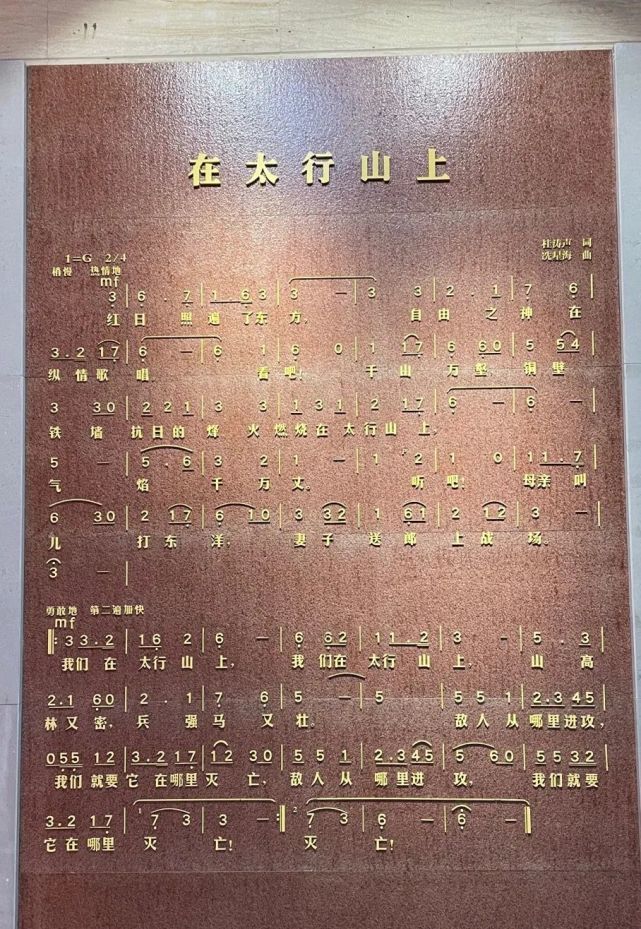 在太行山上
杜涛声 词
冼星海 曲
1=G 2/4
稍慢 热情地
mf
3 | 6 . 7 | 1 6 3 | 3 — | 3 3 | 2 . 1 | 7 6 |
红日照遍了东方， 自由之神在
3.2 17 | 6 — | 6 1 | 6 0 | 1 17 | 6 60 | 5 54 |
纵情歌唱 看吧！ 千山万壑，铜壁
3 30 | 2 2 1 | 3 3 | 1 3 1 | 2 17 | 6 — | 6 — |
铁墙 抗日的烽火燃烧在太行山上，
5 — | 5 . 6 | 3 2 | 1 — | 1 2 | 1 0 | 11 . 7 |
气焰千万丈。 听吧！ 母亲叫
6 30 | 2 17 | 6 10 | 3 32 | 1 61 | 2 12 | 3 — |
儿打东洋， 妻子送郎上战场。
3 — |
勇敢地 第二遍加快
mf
33.2 | 16 2 | 6 — | 6 62 | 11.2 | 3 — | 5 . 3 |
我们在太行山上， 我们在太行山上， 山高
2.1 60 | 2 . 1 | 7 6 | 5 — | 5 | 5 5 1 | 2.345 |
林又密，兵强马又壮。 敌人从哪里进攻，
055 12 | 3.2 17 | 12 30 | 5 5 1 | 2.345 | 5 60 | 5532 |
我们就要它在哪里灭亡，敌人从哪里进攻， 我们就要
3.2 17 | 1 7 3 | 3 — :‖ 2 7 3 | 6 — | 6 — ‖
它在哪里灭亡！ 灭亡！